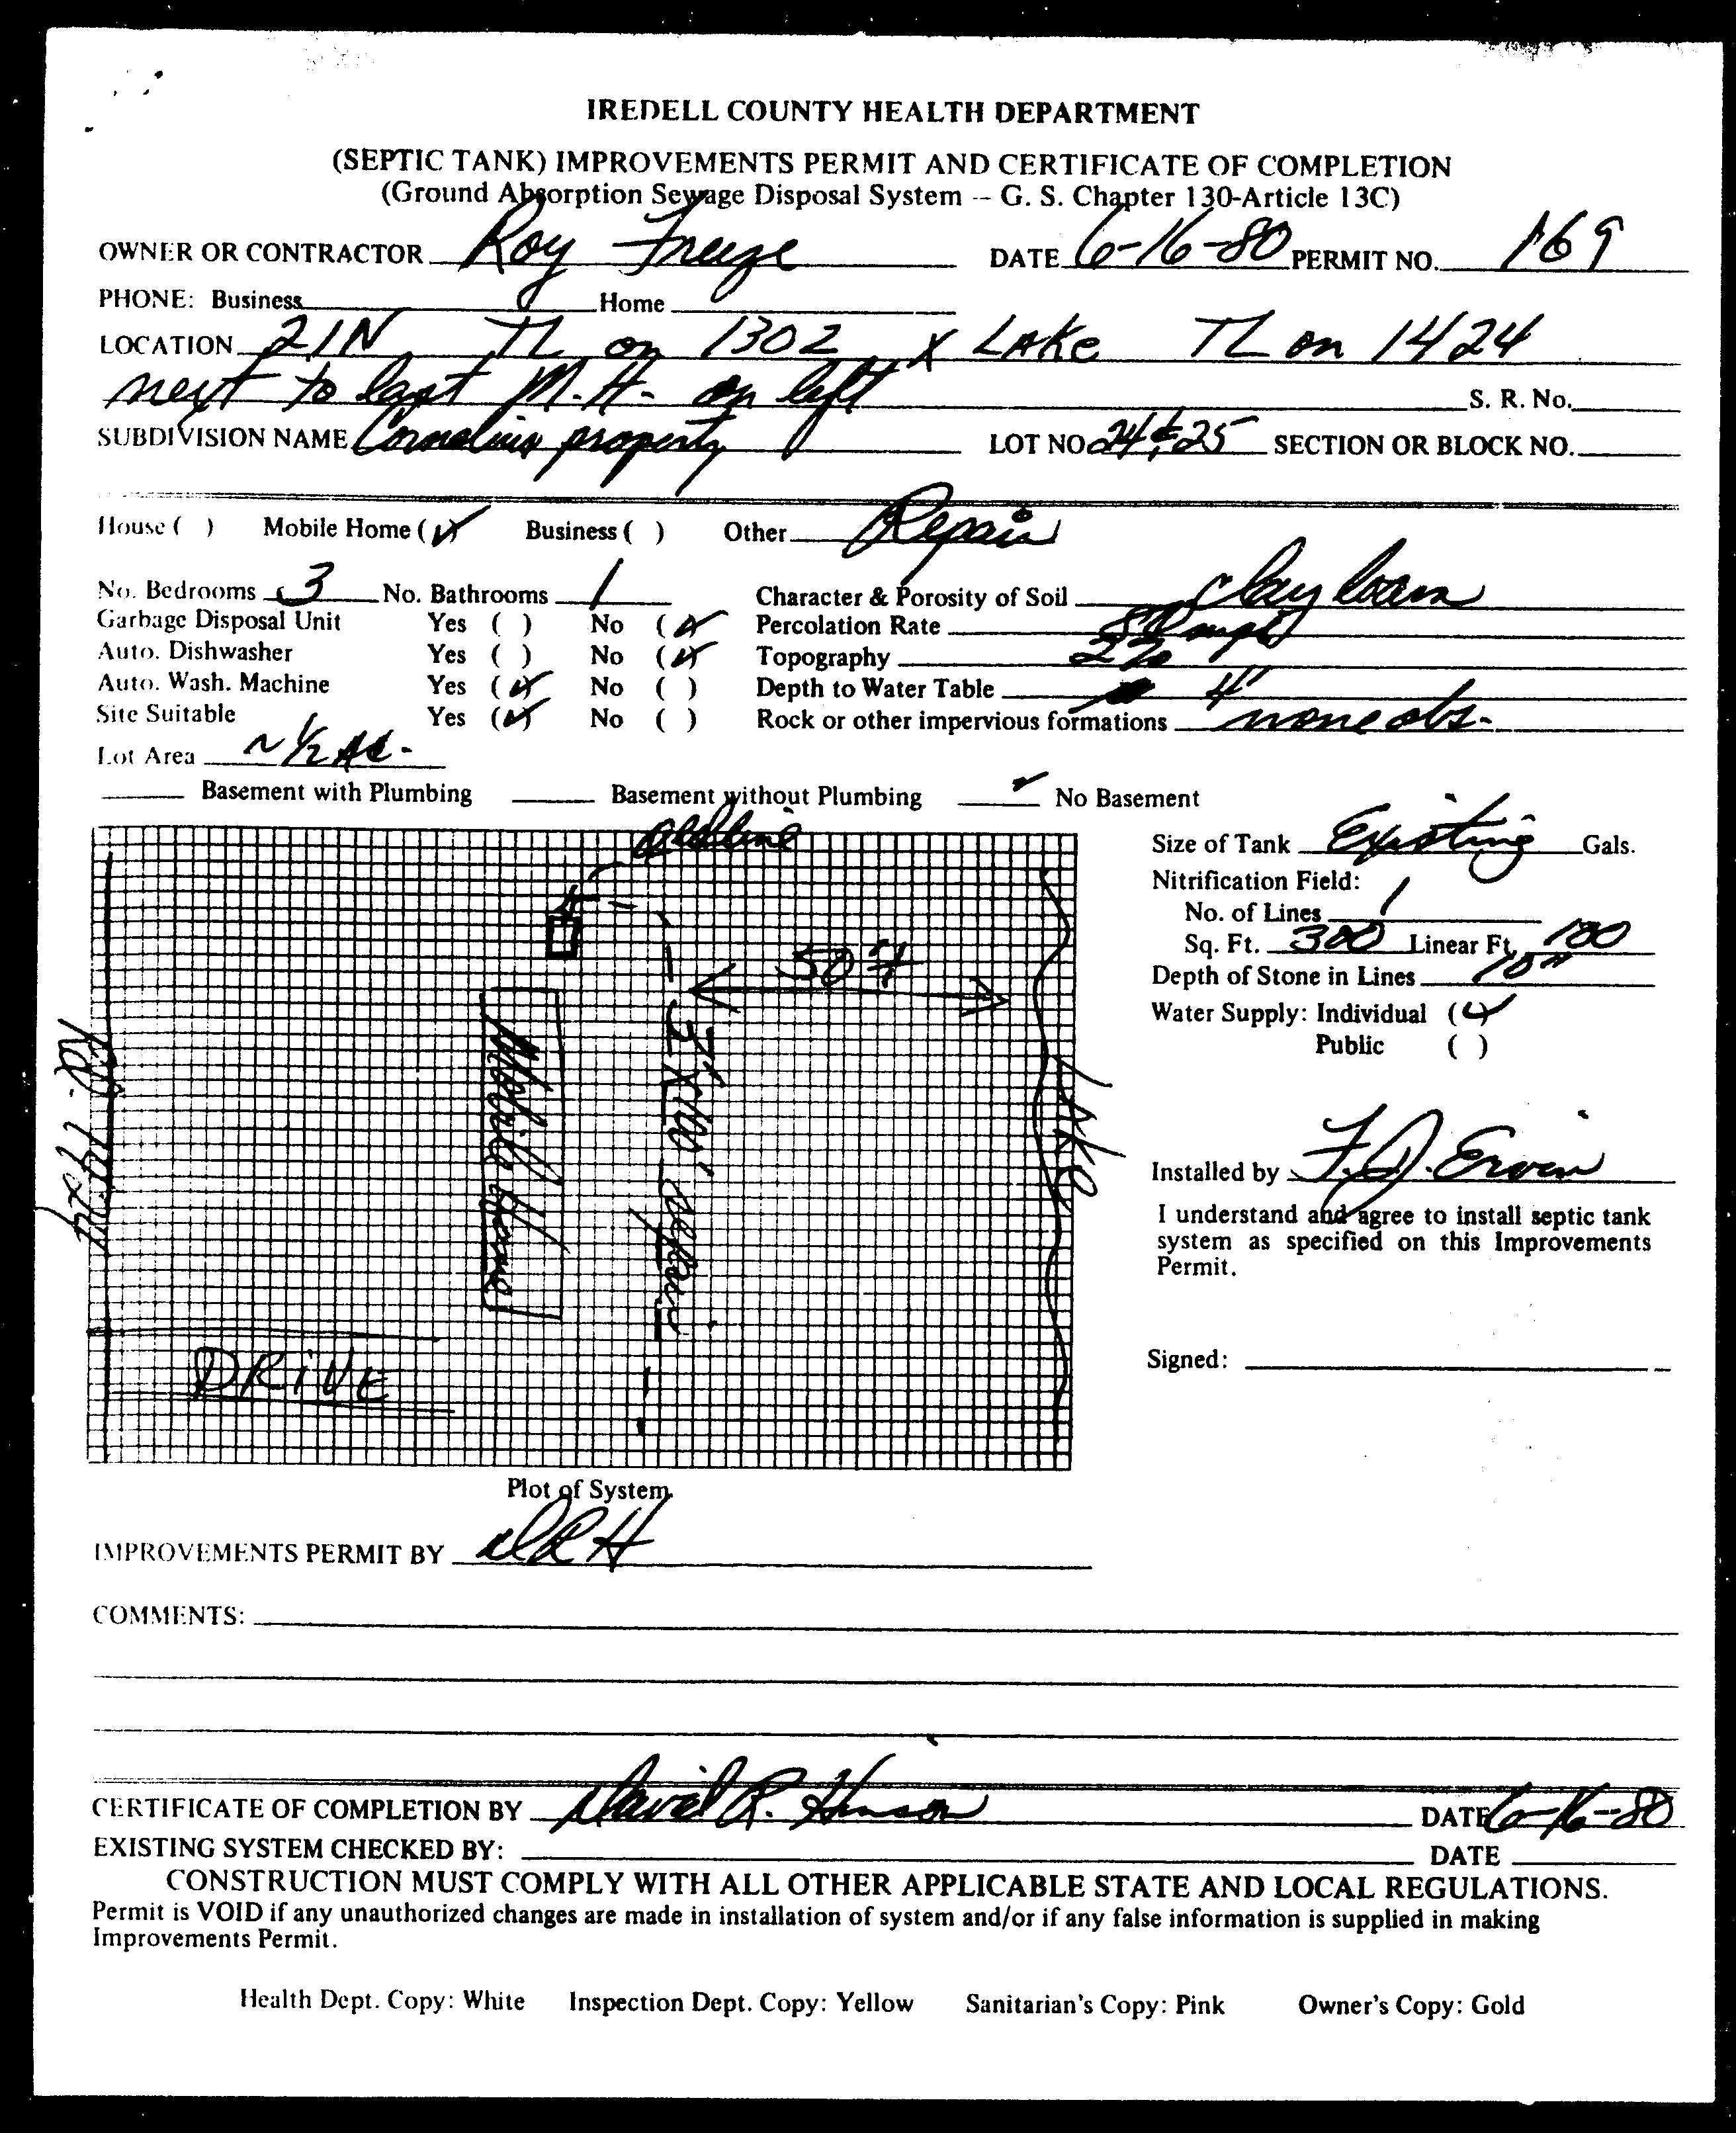 IREDELL COUNTY HEALTH DEPARTMENT
(SEPTIC TANK) IMPROVEMENTS PERMIT AND CERTIFICATE OF COMPLETION
(Ground Absorption Sewage Disposal System -- G. S. Chapter 130-Article 13C)
OWNER OR CONTRACTOR Roy Freeze DATE 6-16-80 PERMIT NO. 169
PHONE: Business Home
LOCATION 21N TL on 1302 X LAKe TL on 1424
next to last M.H. on left S. R. No.
SUBDIVISION NAME Cornelius property LOT NO 24 & 25 SECTION OR BLOCK NO.
House ( ) Mobile Home (✓) Business ( ) Other Repair
No. Bedrooms 3 No. Bathrooms 1 Character & Porosity of Soil clay loam
Garbage Disposal Unit Yes ( ) No (✓) Percolation Rate
Auto. Dishwasher Yes ( ) No (✓) Topography 2%
Auto. Wash. Machine Yes (✓) No ( ) Depth to Water Table 4'
Site Suitable Yes (✓) No ( ) Rock or other impervious formations none obs.
Lot Area ~ 1/2 AC.
Basement with Plumbing Basement without Plumbing ✓ No Basement
old line
50 ft
Mobile Home
3' X 100'
Rd. 1424
LAKe
DRiVE
Plot of System
Size of Tank Existing Gals.
Nitrification Field:
No. of Lines 1
Sq. Ft. 300 Linear Ft. 100
Depth of Stone in Lines 10"
Water Supply: Individual (✓)
Public ( )
Installed by F.J. Ervin
I understand and agree to install septic tank
system as specified on this Improvements
Permit.
Signed:
IMPROVEMENTS PERMIT BY DRH
COMMENTS:
CERTIFICATE OF COMPLETION BY David R. Hinson DATE 6-16-80
EXISTING SYSTEM CHECKED BY: DATE
CONSTRUCTION MUST COMPLY WITH ALL OTHER APPLICABLE STATE AND LOCAL REGULATIONS.
Permit is VOID if any unauthorized changes are made in installation of system and/or if any false information is supplied in making
Improvements Permit.
Health Dept. Copy: White Inspection Dept. Copy: Yellow Sanitarian's Copy: Pink Owner's Copy: Gold